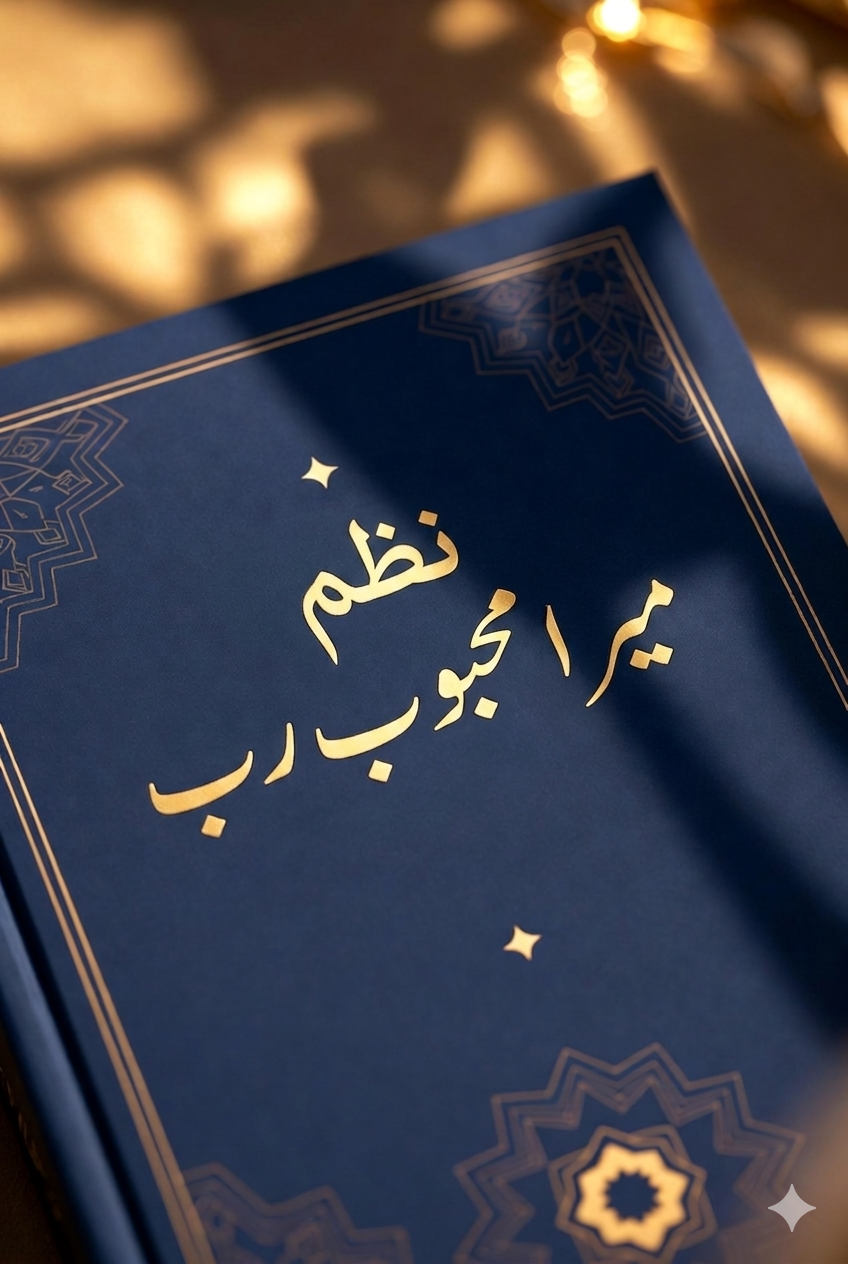 نظم
میرا محبوب رب